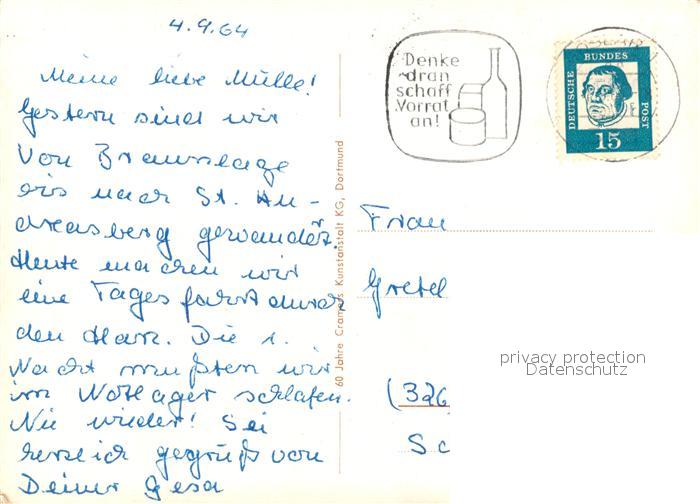 4.9.64
Meine liebe Mulle!
Gestern sind wir
von Braunlage
bis nach St. An-
dreasberg gewandert.
Heute machen wir
eine Tagesfahrt durch
den Harz. Die 1.
Nacht mußten wir
im Notlager schlafen.
Nie wieder! Sei
herzlich gegrüßt von
Deiner Gesa
60 Jahre Cramers Kunstanstalt KG, Dortmund
Denke
dran
schaff
Vorrat
an!
DEUTSCHE
BUNDES
POST
15
Frau
Gretel
privacy protection
Datenschutz
(326
Sc